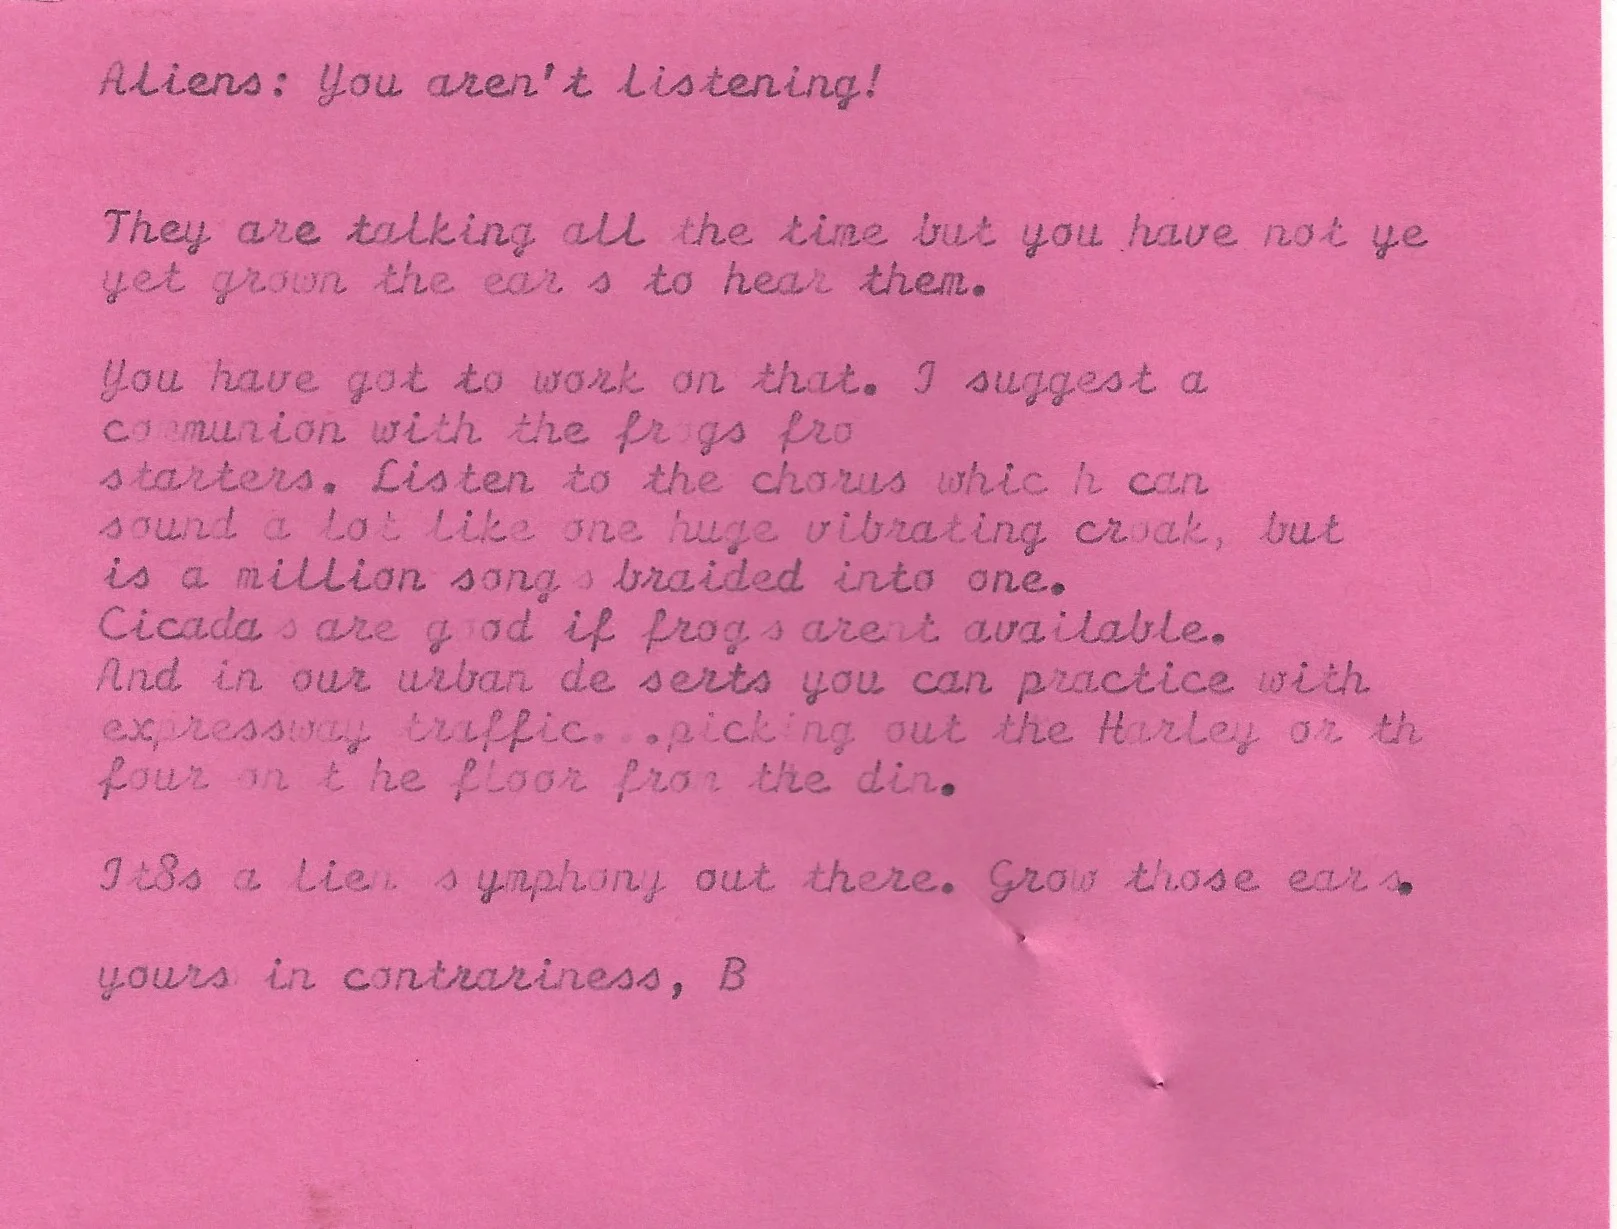 Aliens: You aren't listening!
They are talking all the time but you have not ye
yet grown the ear s to hear them.
You have got to work on that. I suggest a
communion with the frogs fro
starters. Listen to the chorus whic h can
sound a lot like one huge vibrating croak, but
is a million song s braided into one.
Cicada s are good if frog s arent available.
And in our urban de serts you can practice with
expressway traffic...picking out the Harley or th
four on t he floor from the din.
It8s a lien s ymphony out there. Grow those ear s.
yours in contrariness, B